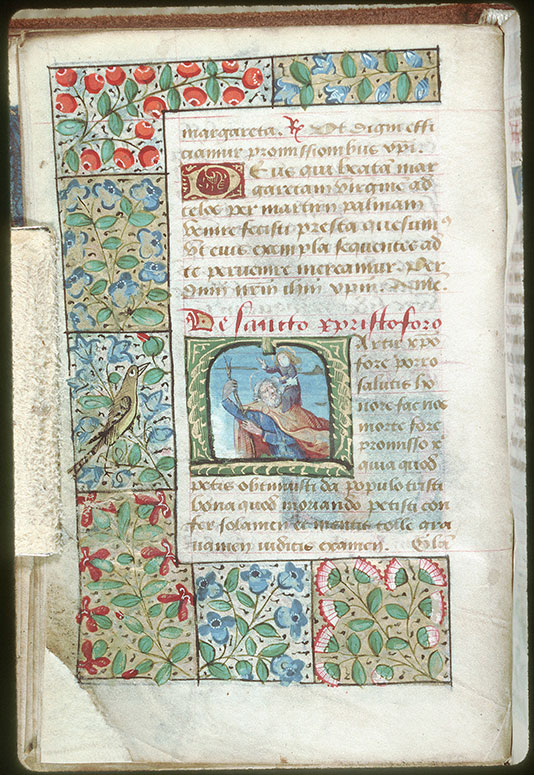 margareta. R Vt digni effi
ciamur promissionibus xpi.
Deus qui beatam mar
garetam virginē ad
celos per martirii palmam
venire fecisti presta quesum9
vt eius exempla sequentes ad
te peruenire mereamur. Per
dnm nrm ihm xpm. Amē.
De sancto xpristoforo
Martir xpo
fore pro
salutis ho
nore fac nos
morte fore
promisso x
quia quod
petis obtinuisti da populo tristi
bona quod moriendo petisti con
fer solamen et mentis tolle gra
uamen iudicis examen. Glā